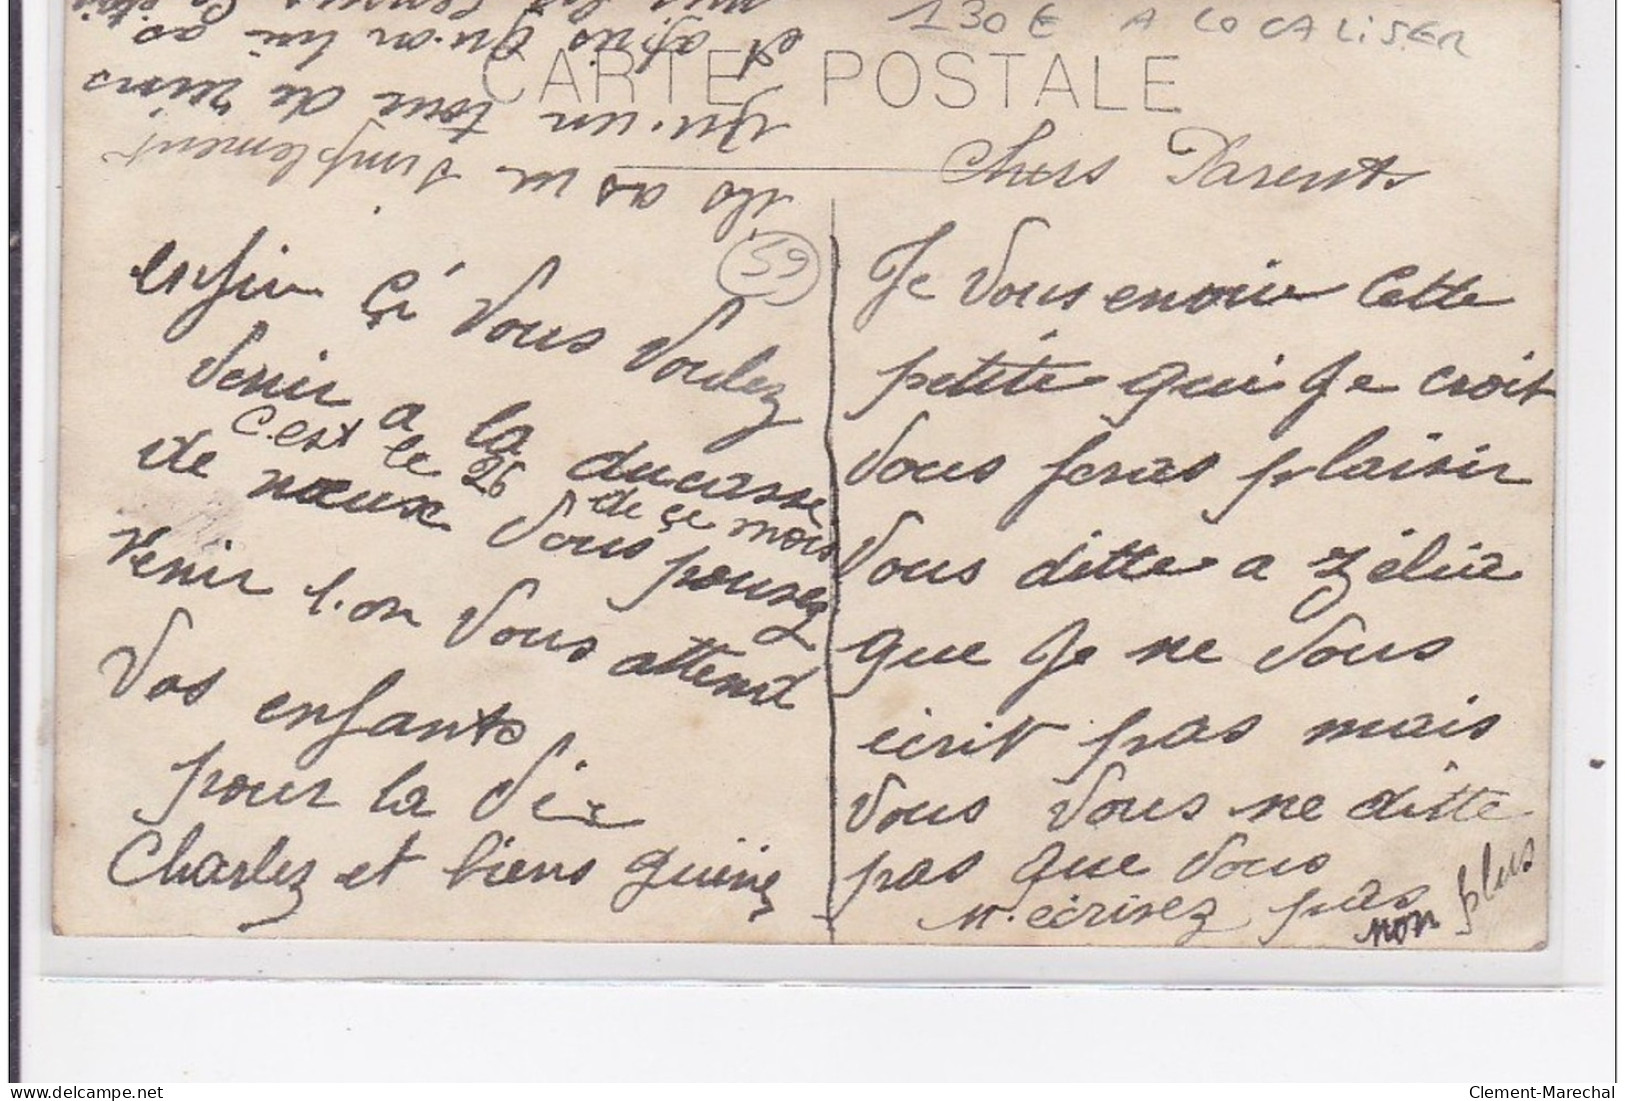 130€ A LOCALISER
CARTE POSTALE
Chers Parents
Je vous envoie cette
petite qui je croit
vous feras plaisir
vous ditte a Zélia
que je ne vous
écrit pas mais
vous vous ne ditte
pas que vous
n'écrivez pas
non plus
enfin çi vous voulez
venir a la ducasse
c'est le 26 de çe mois
de nœux vous pouvez
venir l'on vous attend
vos enfants
pour la vie
Charlez et
59
ils as eu simplement
qu'un tour de reins
et après qu'on lui as
delcampe.net
Clement-Marechal